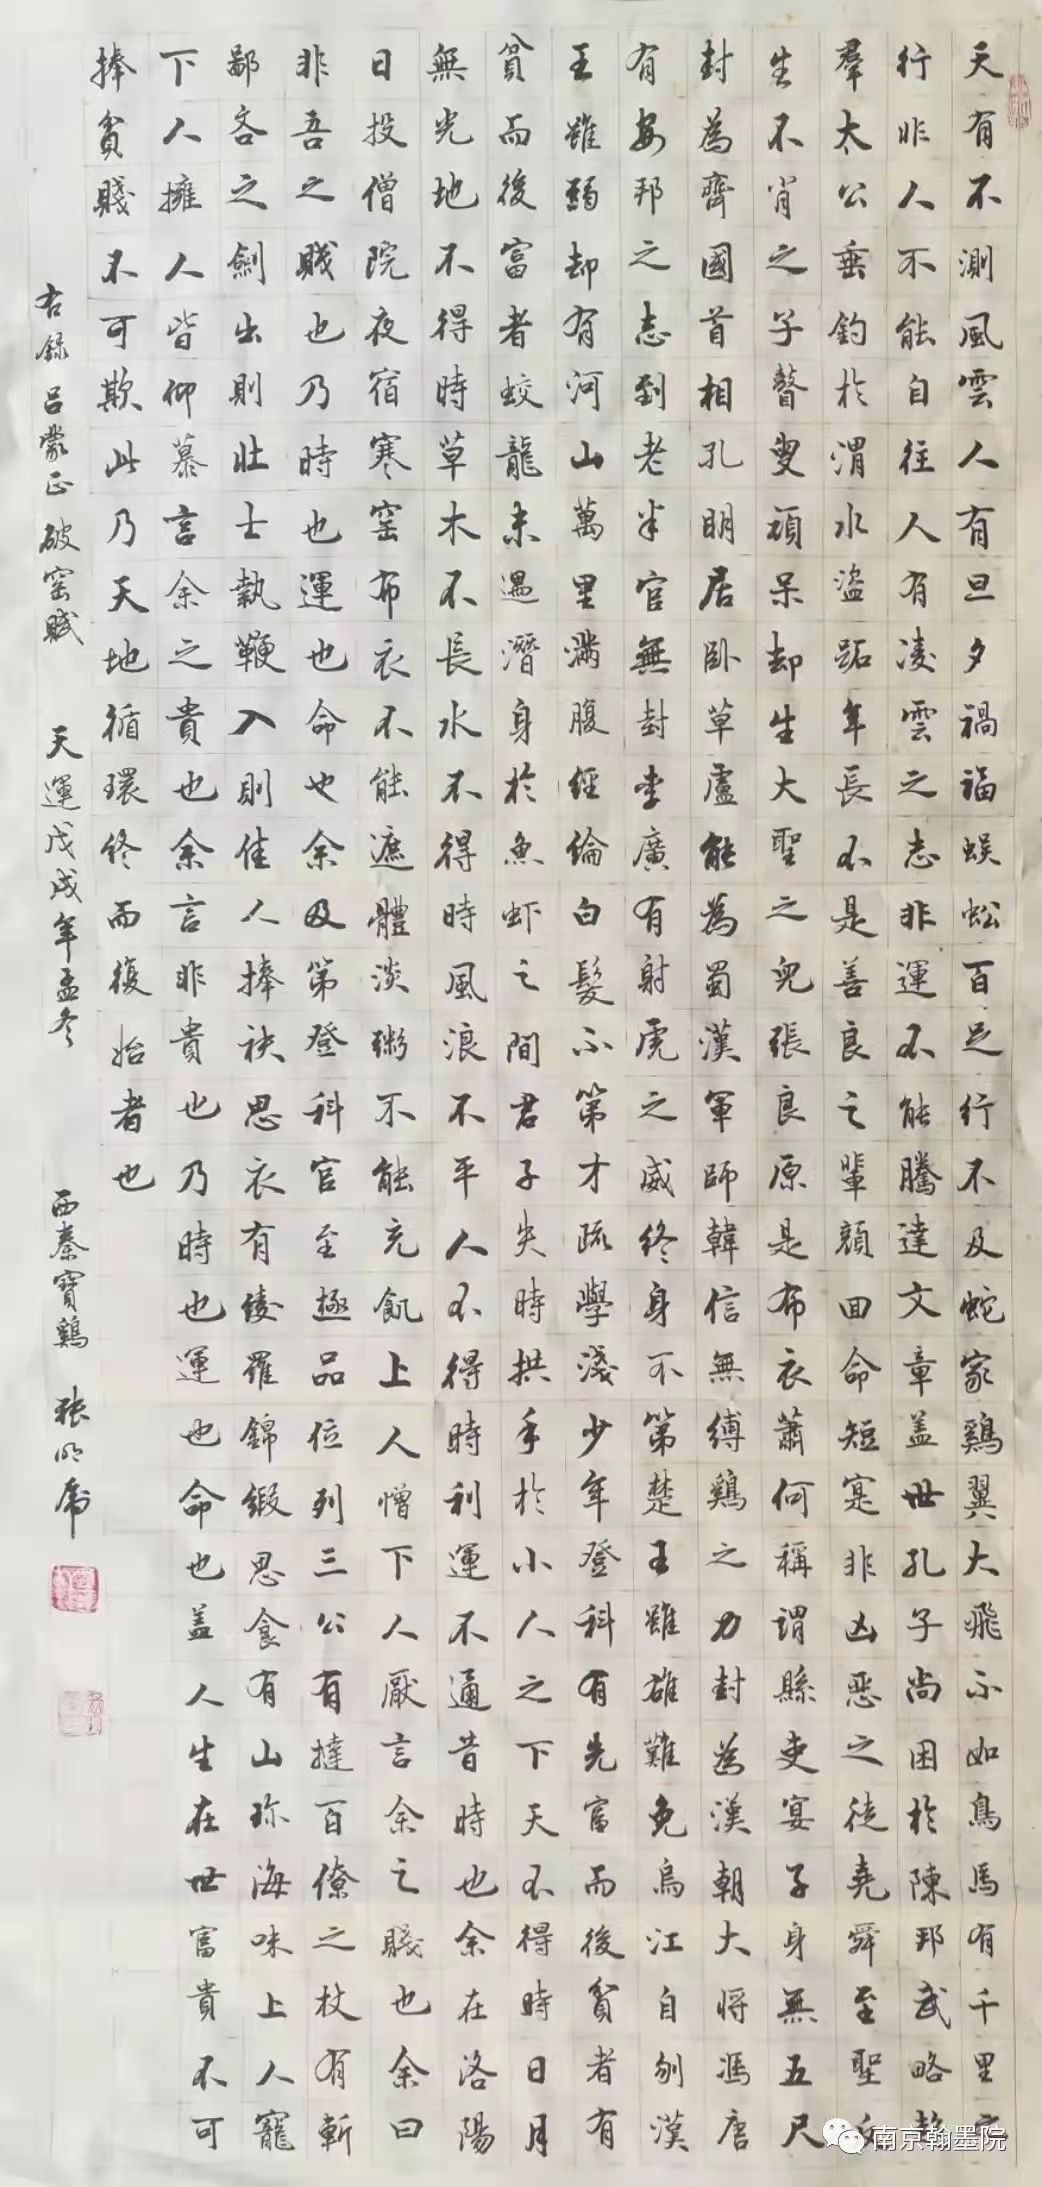 天有不測風雲人有旦夕禍福蜈蚣百足行不及蛇家鷄翼大飛不如鳥馬有千里
行非人不能自往人有凌雲之志非運不能騰達文章盖世孔子尚困於陳邦武略
羣太公垂釣於渭水盜跖年長不是善良之輩顔回命短寔非凶惡之徒堯舜至聖
生不肖之子瞽叟頑呆却生大聖之兒張良原是布衣蕭何稱謂縣吏宴子身無五尺
封為齊國首相孔明居卧草廬能為蜀漢軍師韓信無縛鷄之力封為漢朝大将馮唐
有安邦之志到老半官無封李廣有射虎之威終身不第楚王雖雄難免烏江自刎漢
王雖弱却有河山萬里滿腹經綸白髮不第才疏學淺少年登科有先富而後貧者有
貧而後富者蛟龍未遇潛身於魚虾之間君子失時拱手於小人之下天不得時日月
無光地不得時草木不長水不得時風浪不平人不得時利運不通昔時也余在洛陽
日投僧院夜宿寒窑布衣不能遮體淡粥不能充飢上人憎下人厭言余之賤也余曰
非吾之賤也乃時也運也命也余及第登科官至極品位列三公有撻百僚之杖有斬
鄙吝之劍出則壯士執鞭入則佳人捧袂思衣有綾羅錦緞思食有山珍海味上人寵
下人擁人皆仰慕言余之貴也余言非貴也乃時也運也命也盖人生在世富貴不可
捧貧賤不可欺此乃天地循環終而復始者也
右錄吕蒙正破窑賦 天運戊戌年孟冬 西秦寶鷄 張
南京翰墨院